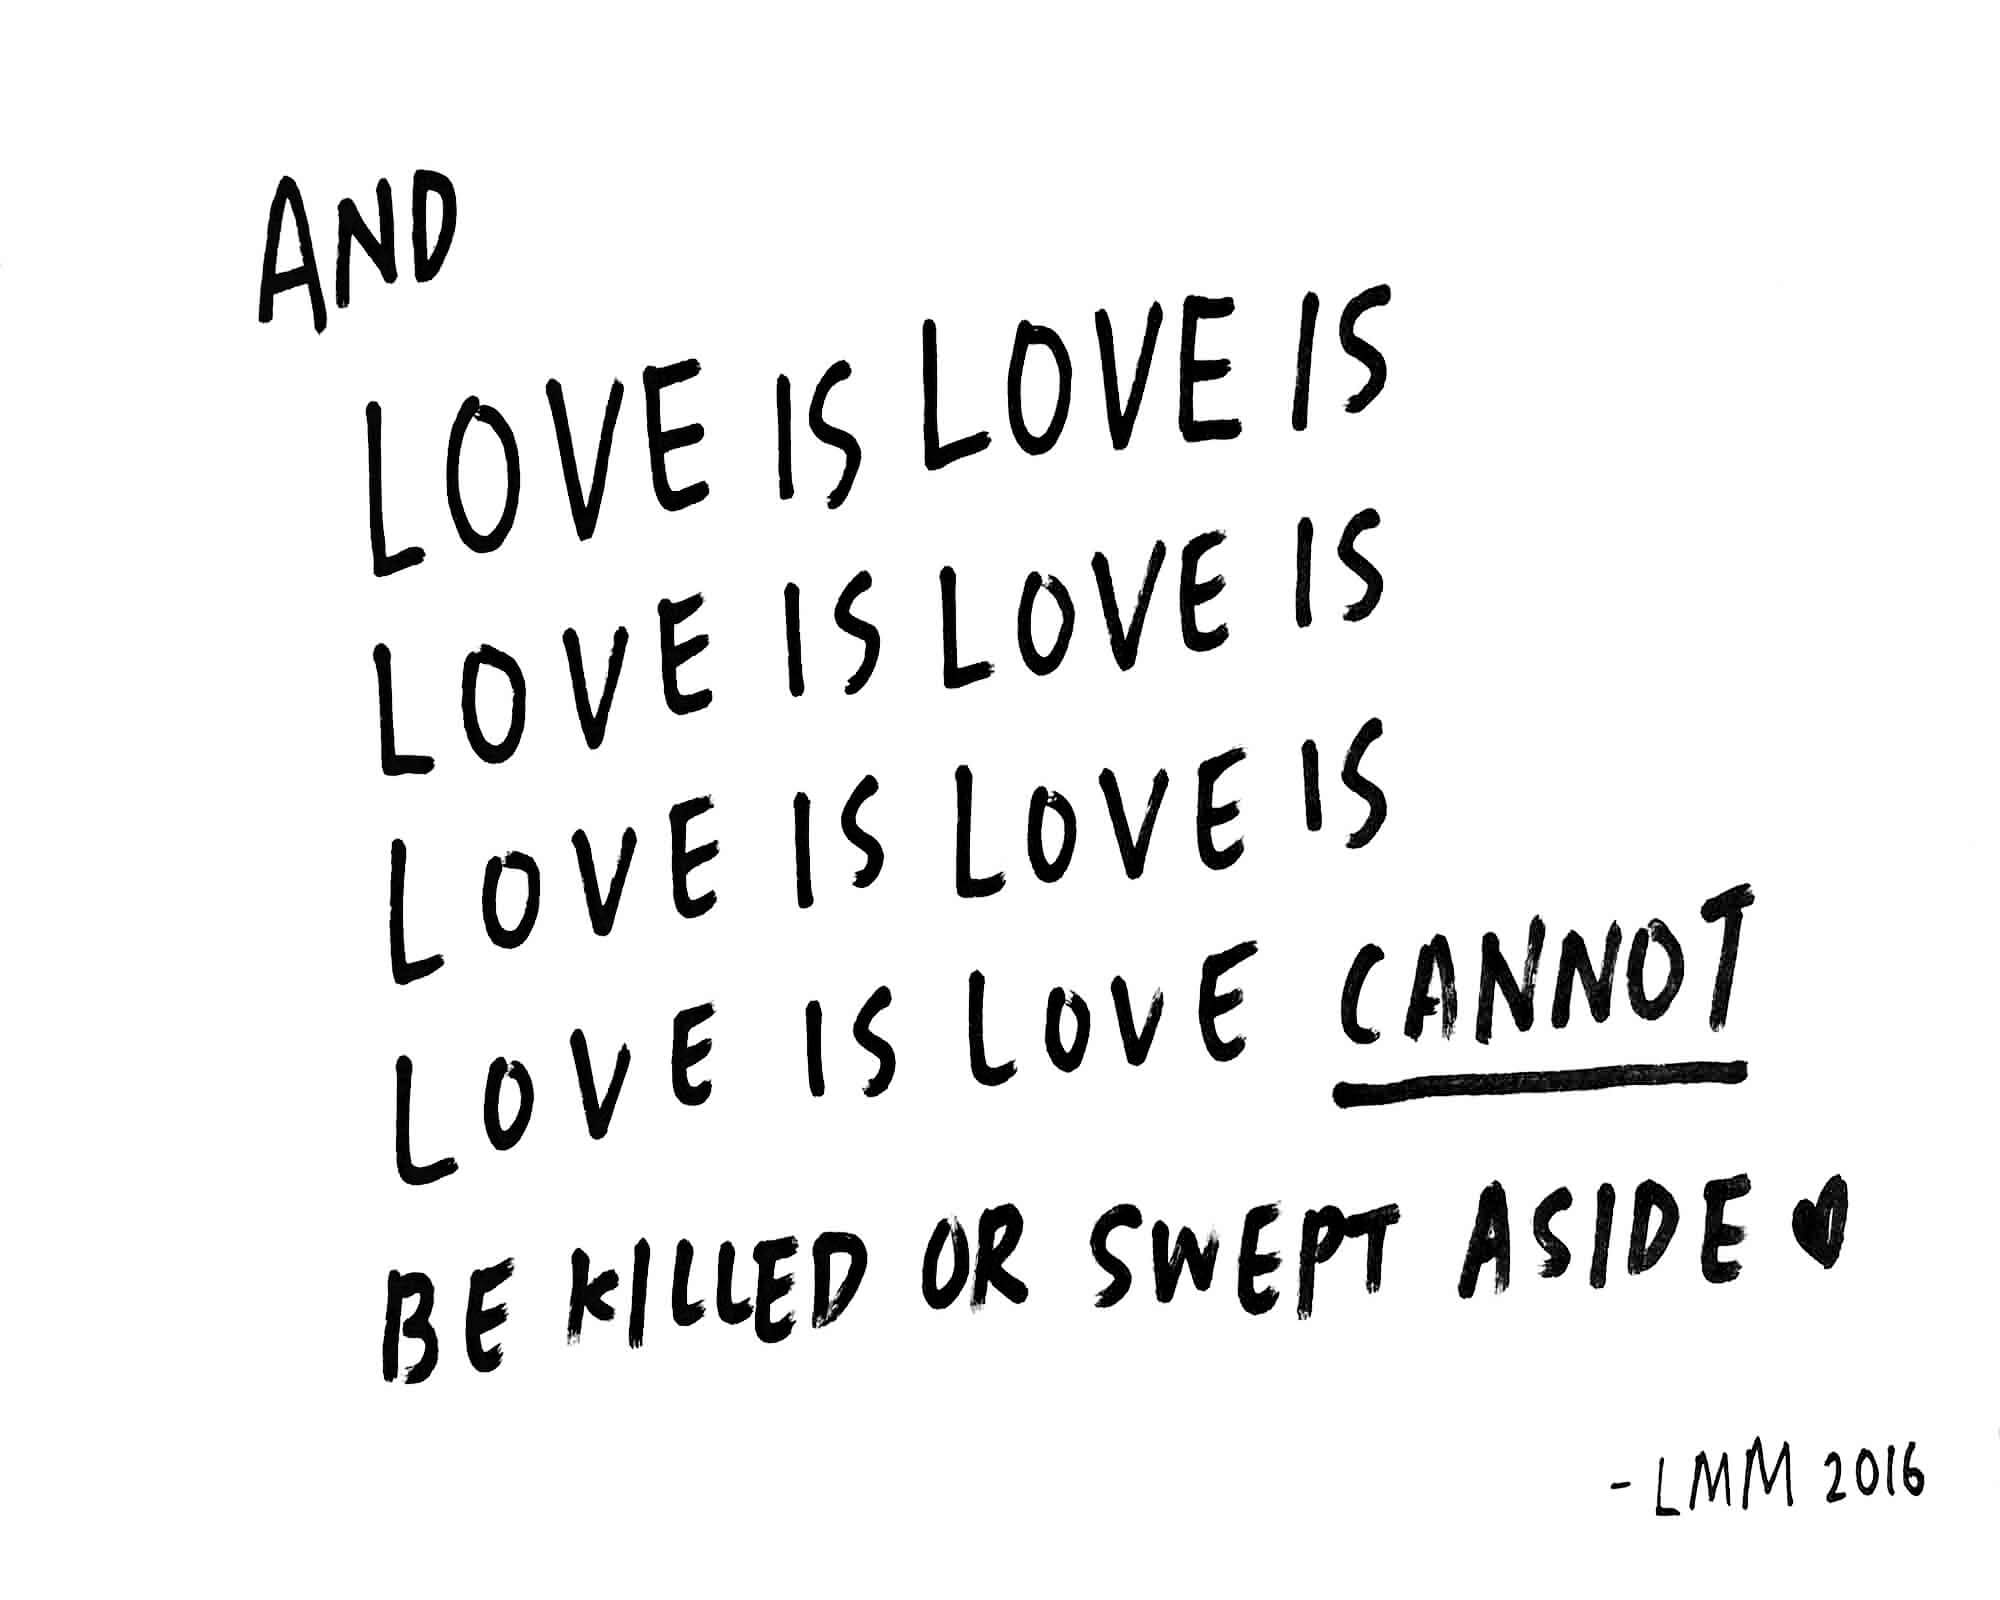 AND
LOVE IS LOVE IS
LOVE IS LOVE IS
LOVE IS LOVE IS
LOVE IS LOVE CANNOT
BE KILLED OR SWEPT ASIDE ♥
- LMM 2016